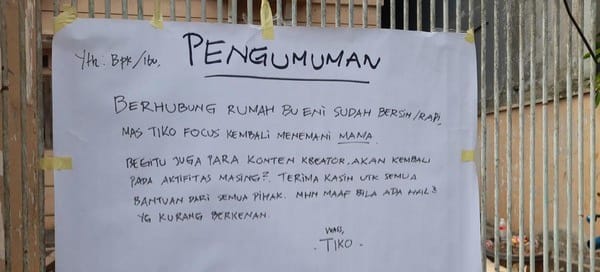 PENGUMUMAN
Yth : Bpk/Ibu,
BERHUBUNG RUMAH BU ENI SUDAH BERSIH/RAPI,
MAS TIKO FOCUS KEMBALI MENEMANI MAMA.
BEGITU JUGA PARA KONTEN KREATOR, AKAN KEMBALI
PADA AKTIFITAS MASING². TERIMA KASIH UTK SEMUA
BANTUAN DARI SEMUA PIHAK. MHN MAAF BILA ADA HAL²
YG KURANG BERKENAN.
TIKO.